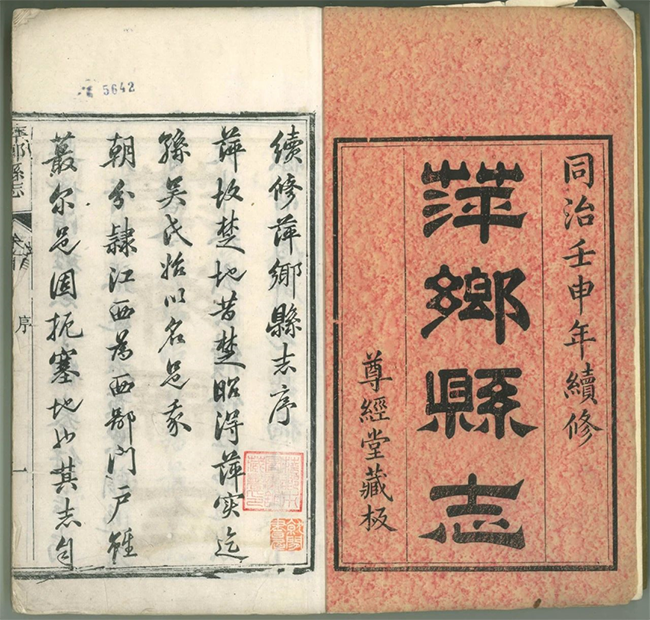 同治壬申年續修
萍鄉縣志
尊經堂藏板
5642
續修萍鄉縣志序
萍故楚地昔楚昭得萍實迄
孫吳氏始以名邑我
朝分隸江西為西鄙門戶雖
蕞尔邑固扼塞地也其志自
萍鄉縣志
序
一